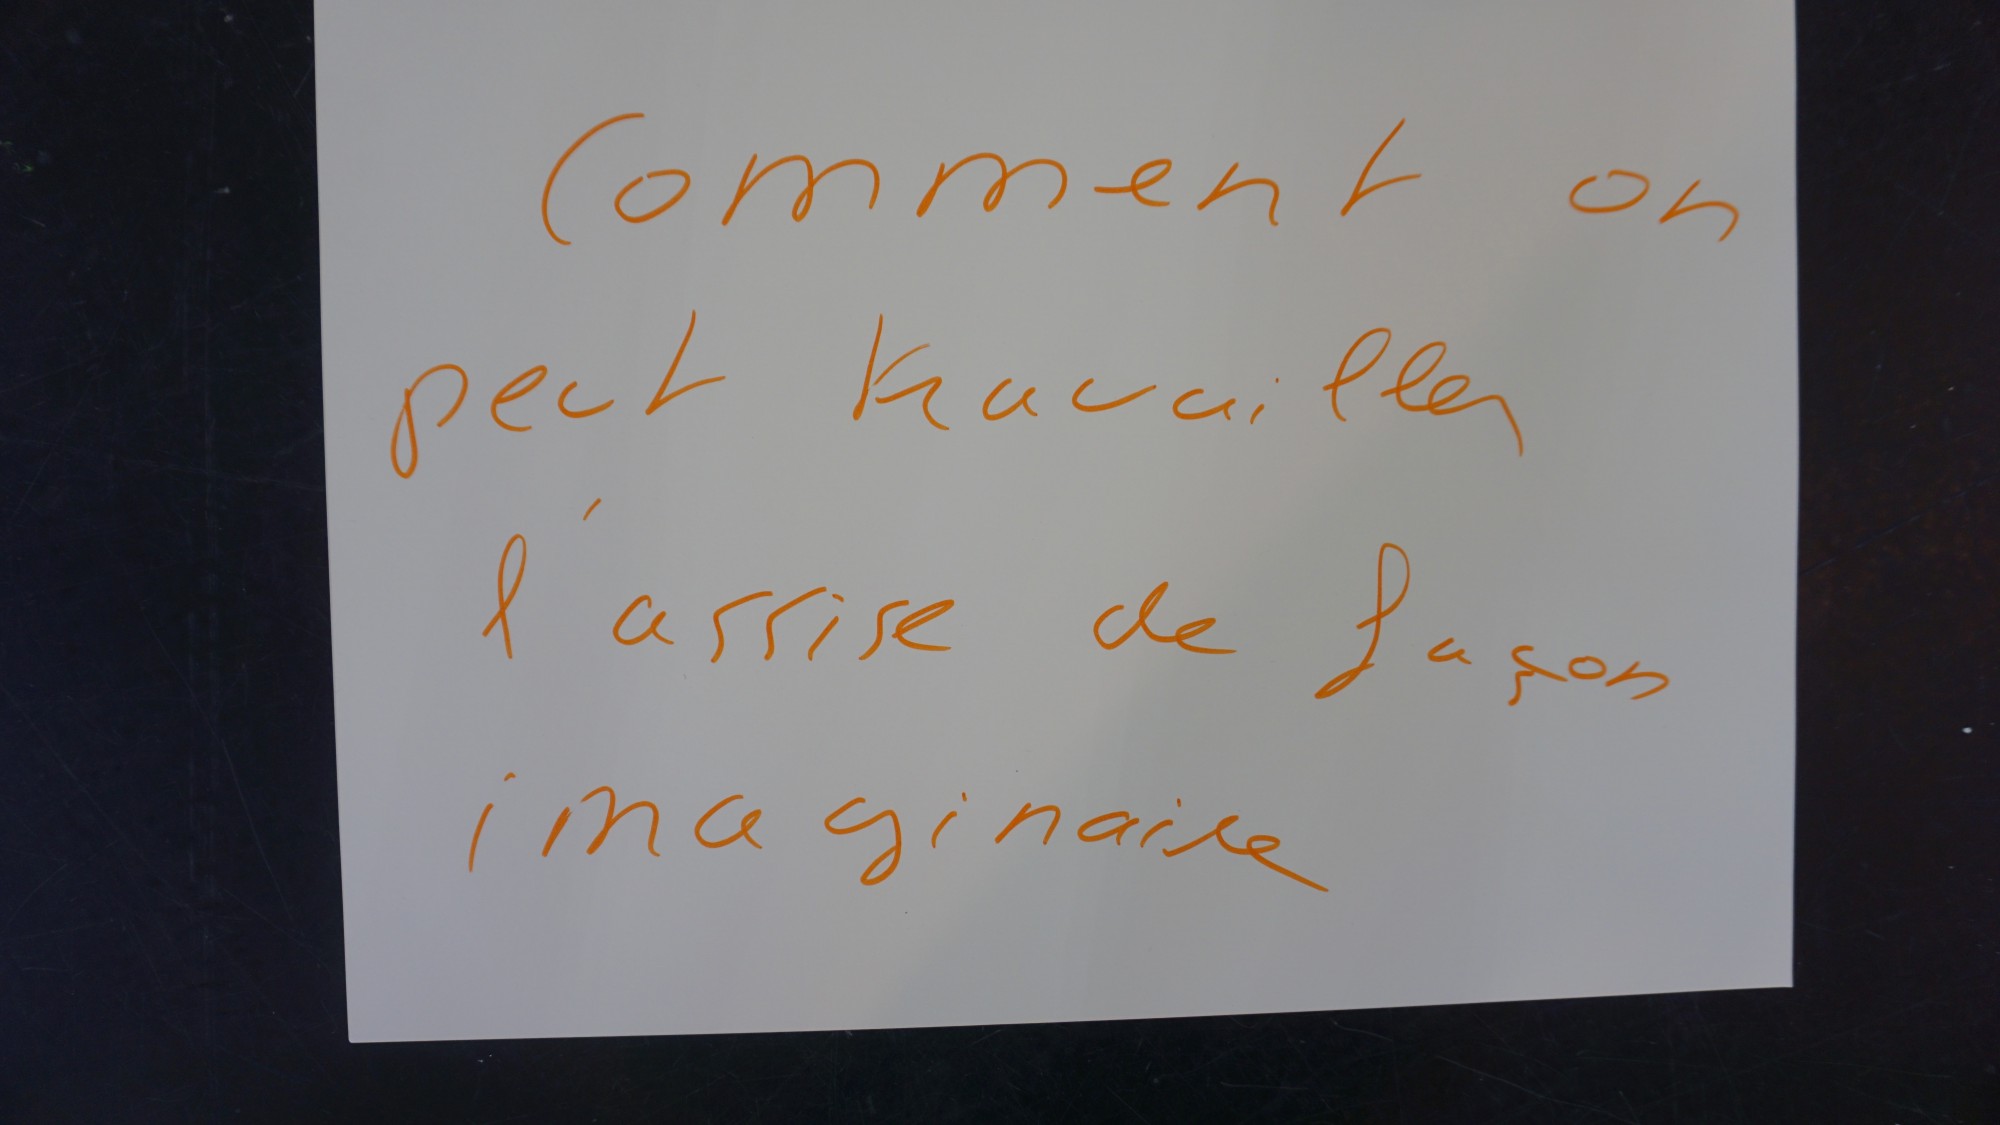 Comment on
peut travailler
l'assise de façon
imaginaire